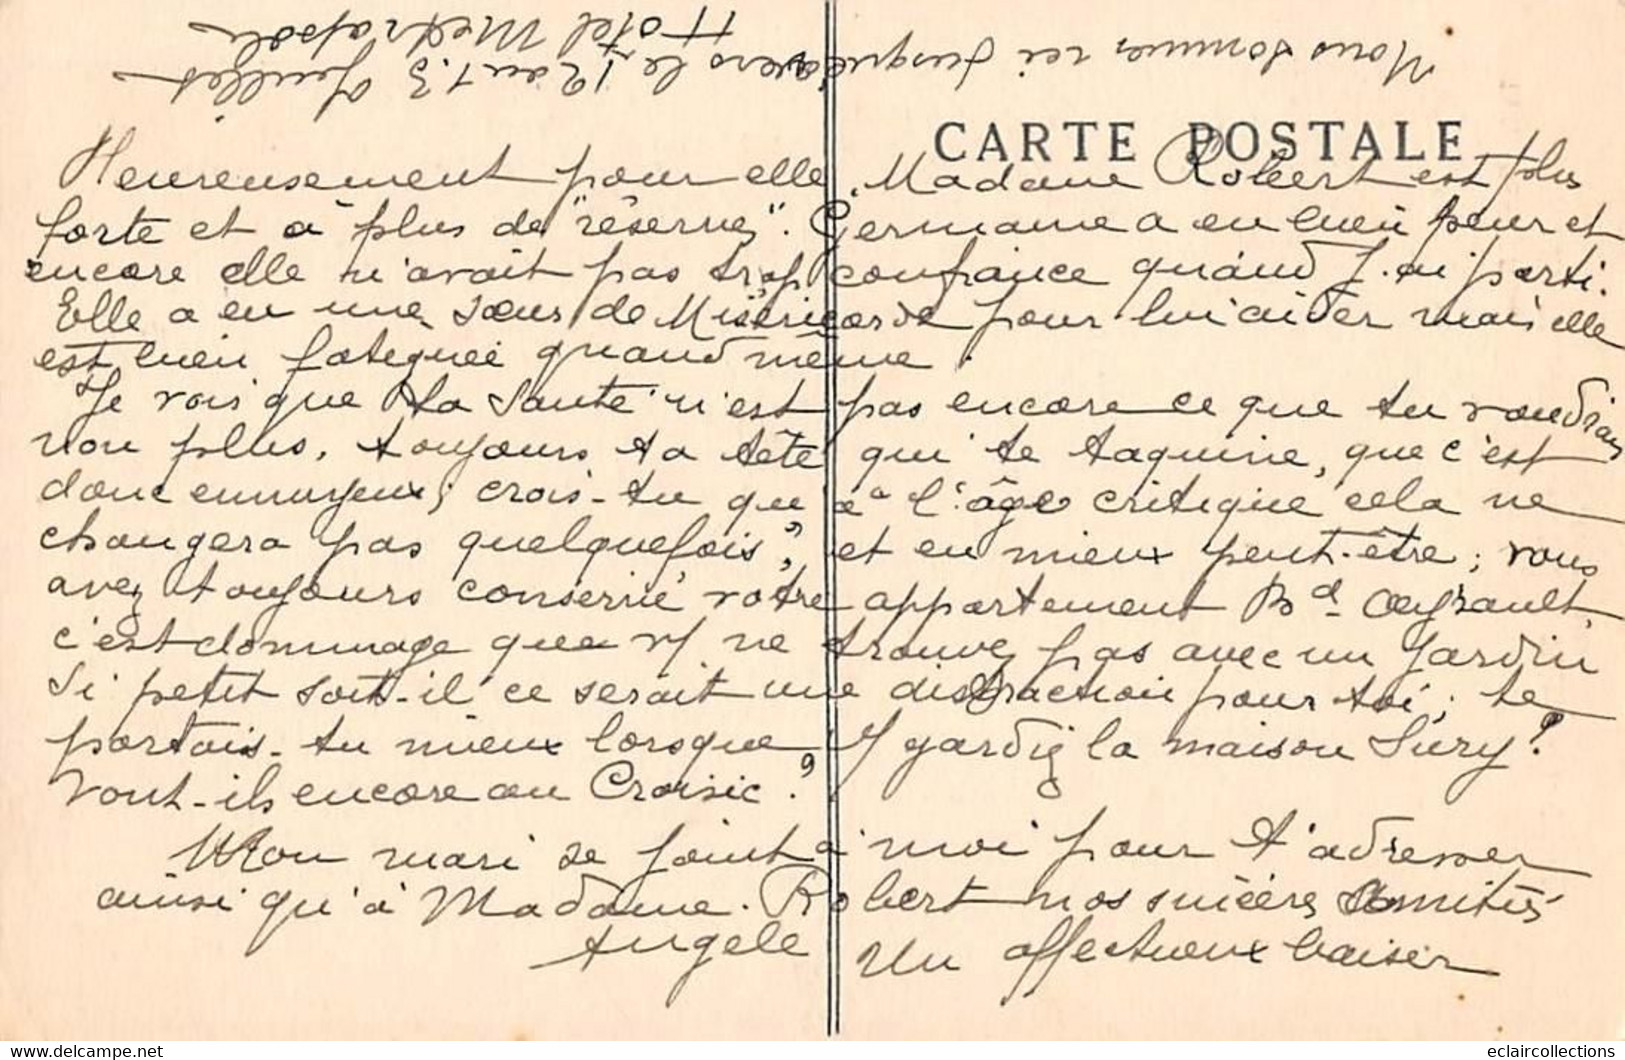 Nous sommes ici jusque vers le 12 au 13 Juillet
Hotel Métropole
CARTE POSTALE
Heureusement pour elle, Madame Robert est plus
forte et a plus de "réserve". Germaine a eu bien peur et
encore elle n'avait pas trop confiance quand J. ai parti.
Elle a eu une sœur de Miséricorde pour lui aider mais elle
est bien fatiguée quand même.
Je vois que ta santé n'est pas encore ce que tu voudrais
non plus, toujours ta tête qui te taquine, que c'est
donc ennuyeux; crois-tu qu'à l'âge critique cela ne
changera pas quelquefois, et en mieux peut-être; vous
avez toujours conservé votre appartement Bd Ayrault,
c'est dommage que v/ ne trouvez pas avec un jardin
si petit soit-il ce serait une distraction pour toi; te
portais-tu mieux lorsque v/ gardiez la maison Sury?
Vont-ils encore au Croisic?
Mon mari se joint à moi pour t'adresser
ainsi qu'à Madame Robert nos sincères amitiés
Un affectueux baiser
Angèle
eclaircollections